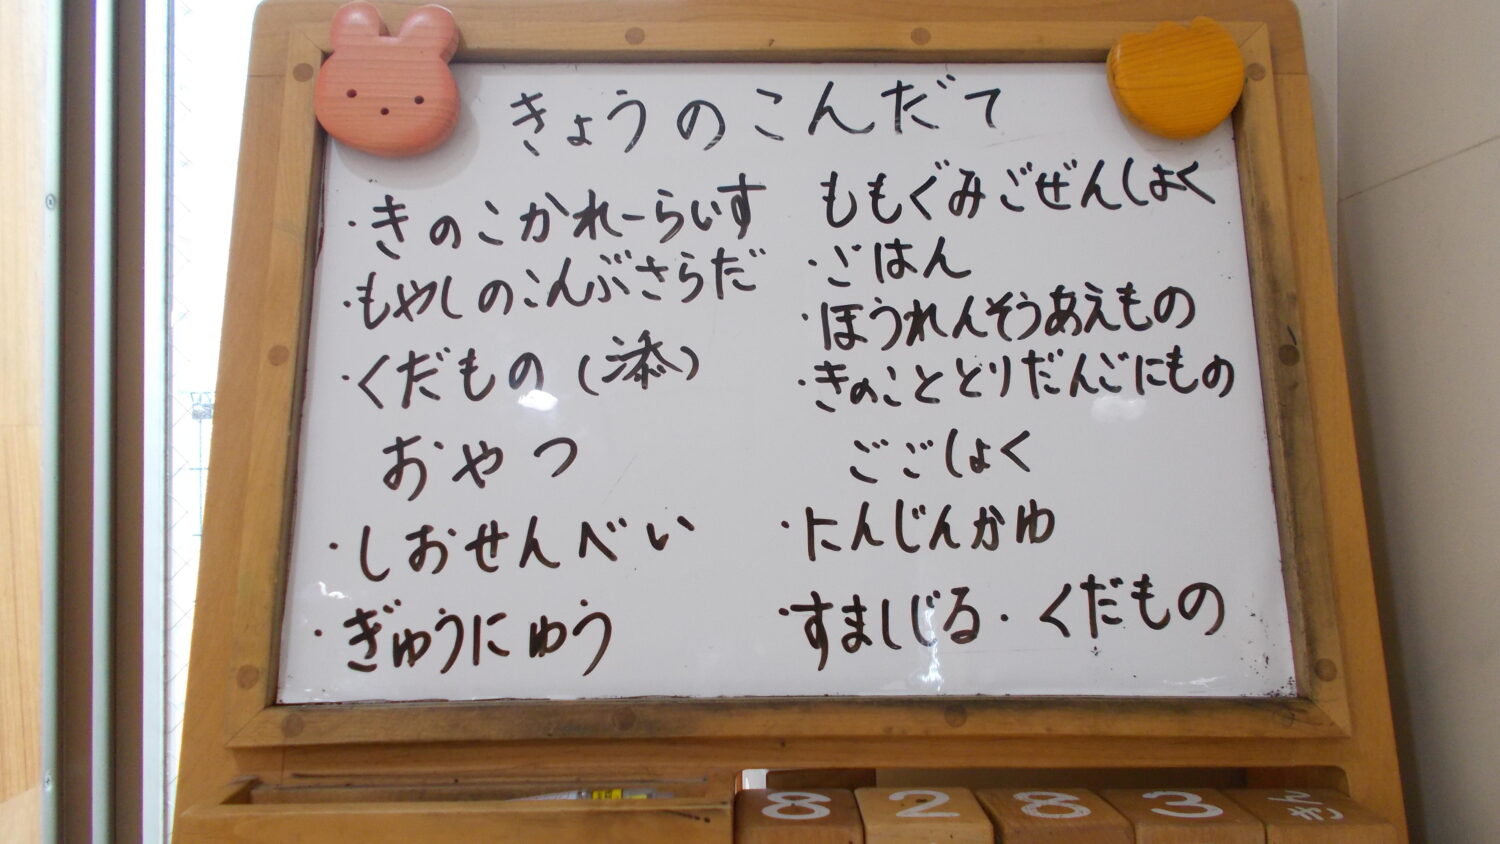 きょうのこんだて
・きのこかれーらいす
・もやしのこんぶさらだ
・くだもの(添)
おやつ
・しおせんべい
・ぎゅうにゅう
ももぐみごぜんしょく
・ごはん
・ほうれんそうあえもの
・きのこととりだんごにもの
ごごしょく
・にんじんかゆ
・すましじる・くだもの
8 2 8 3